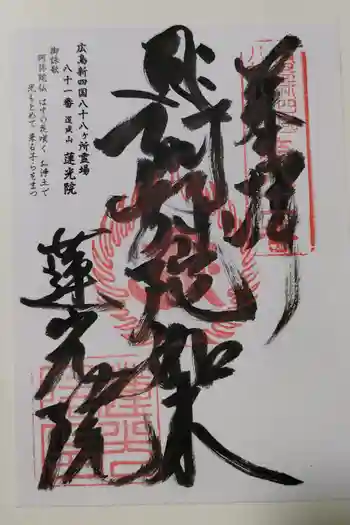 奉拝
阿弥陀如来
蓮光院
広島新四国八十八ヶ所霊場
八十一番 道城山 蓮光院
御詠歌
阿弥陀仏 はすの花咲く お浄土で
光もとめて 来る子らをまつ